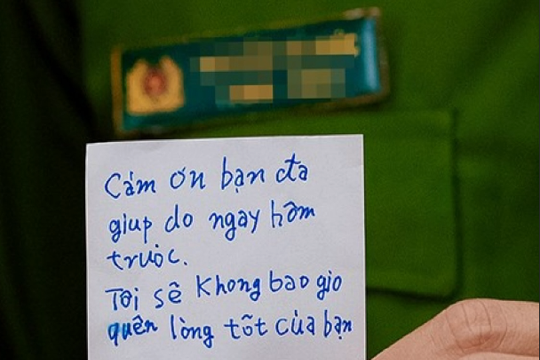 Cám ơn bạn đa
giup do ngay hôm
trước.
Tôi sẽ Không bao gio
quên lòng tốt của bạn